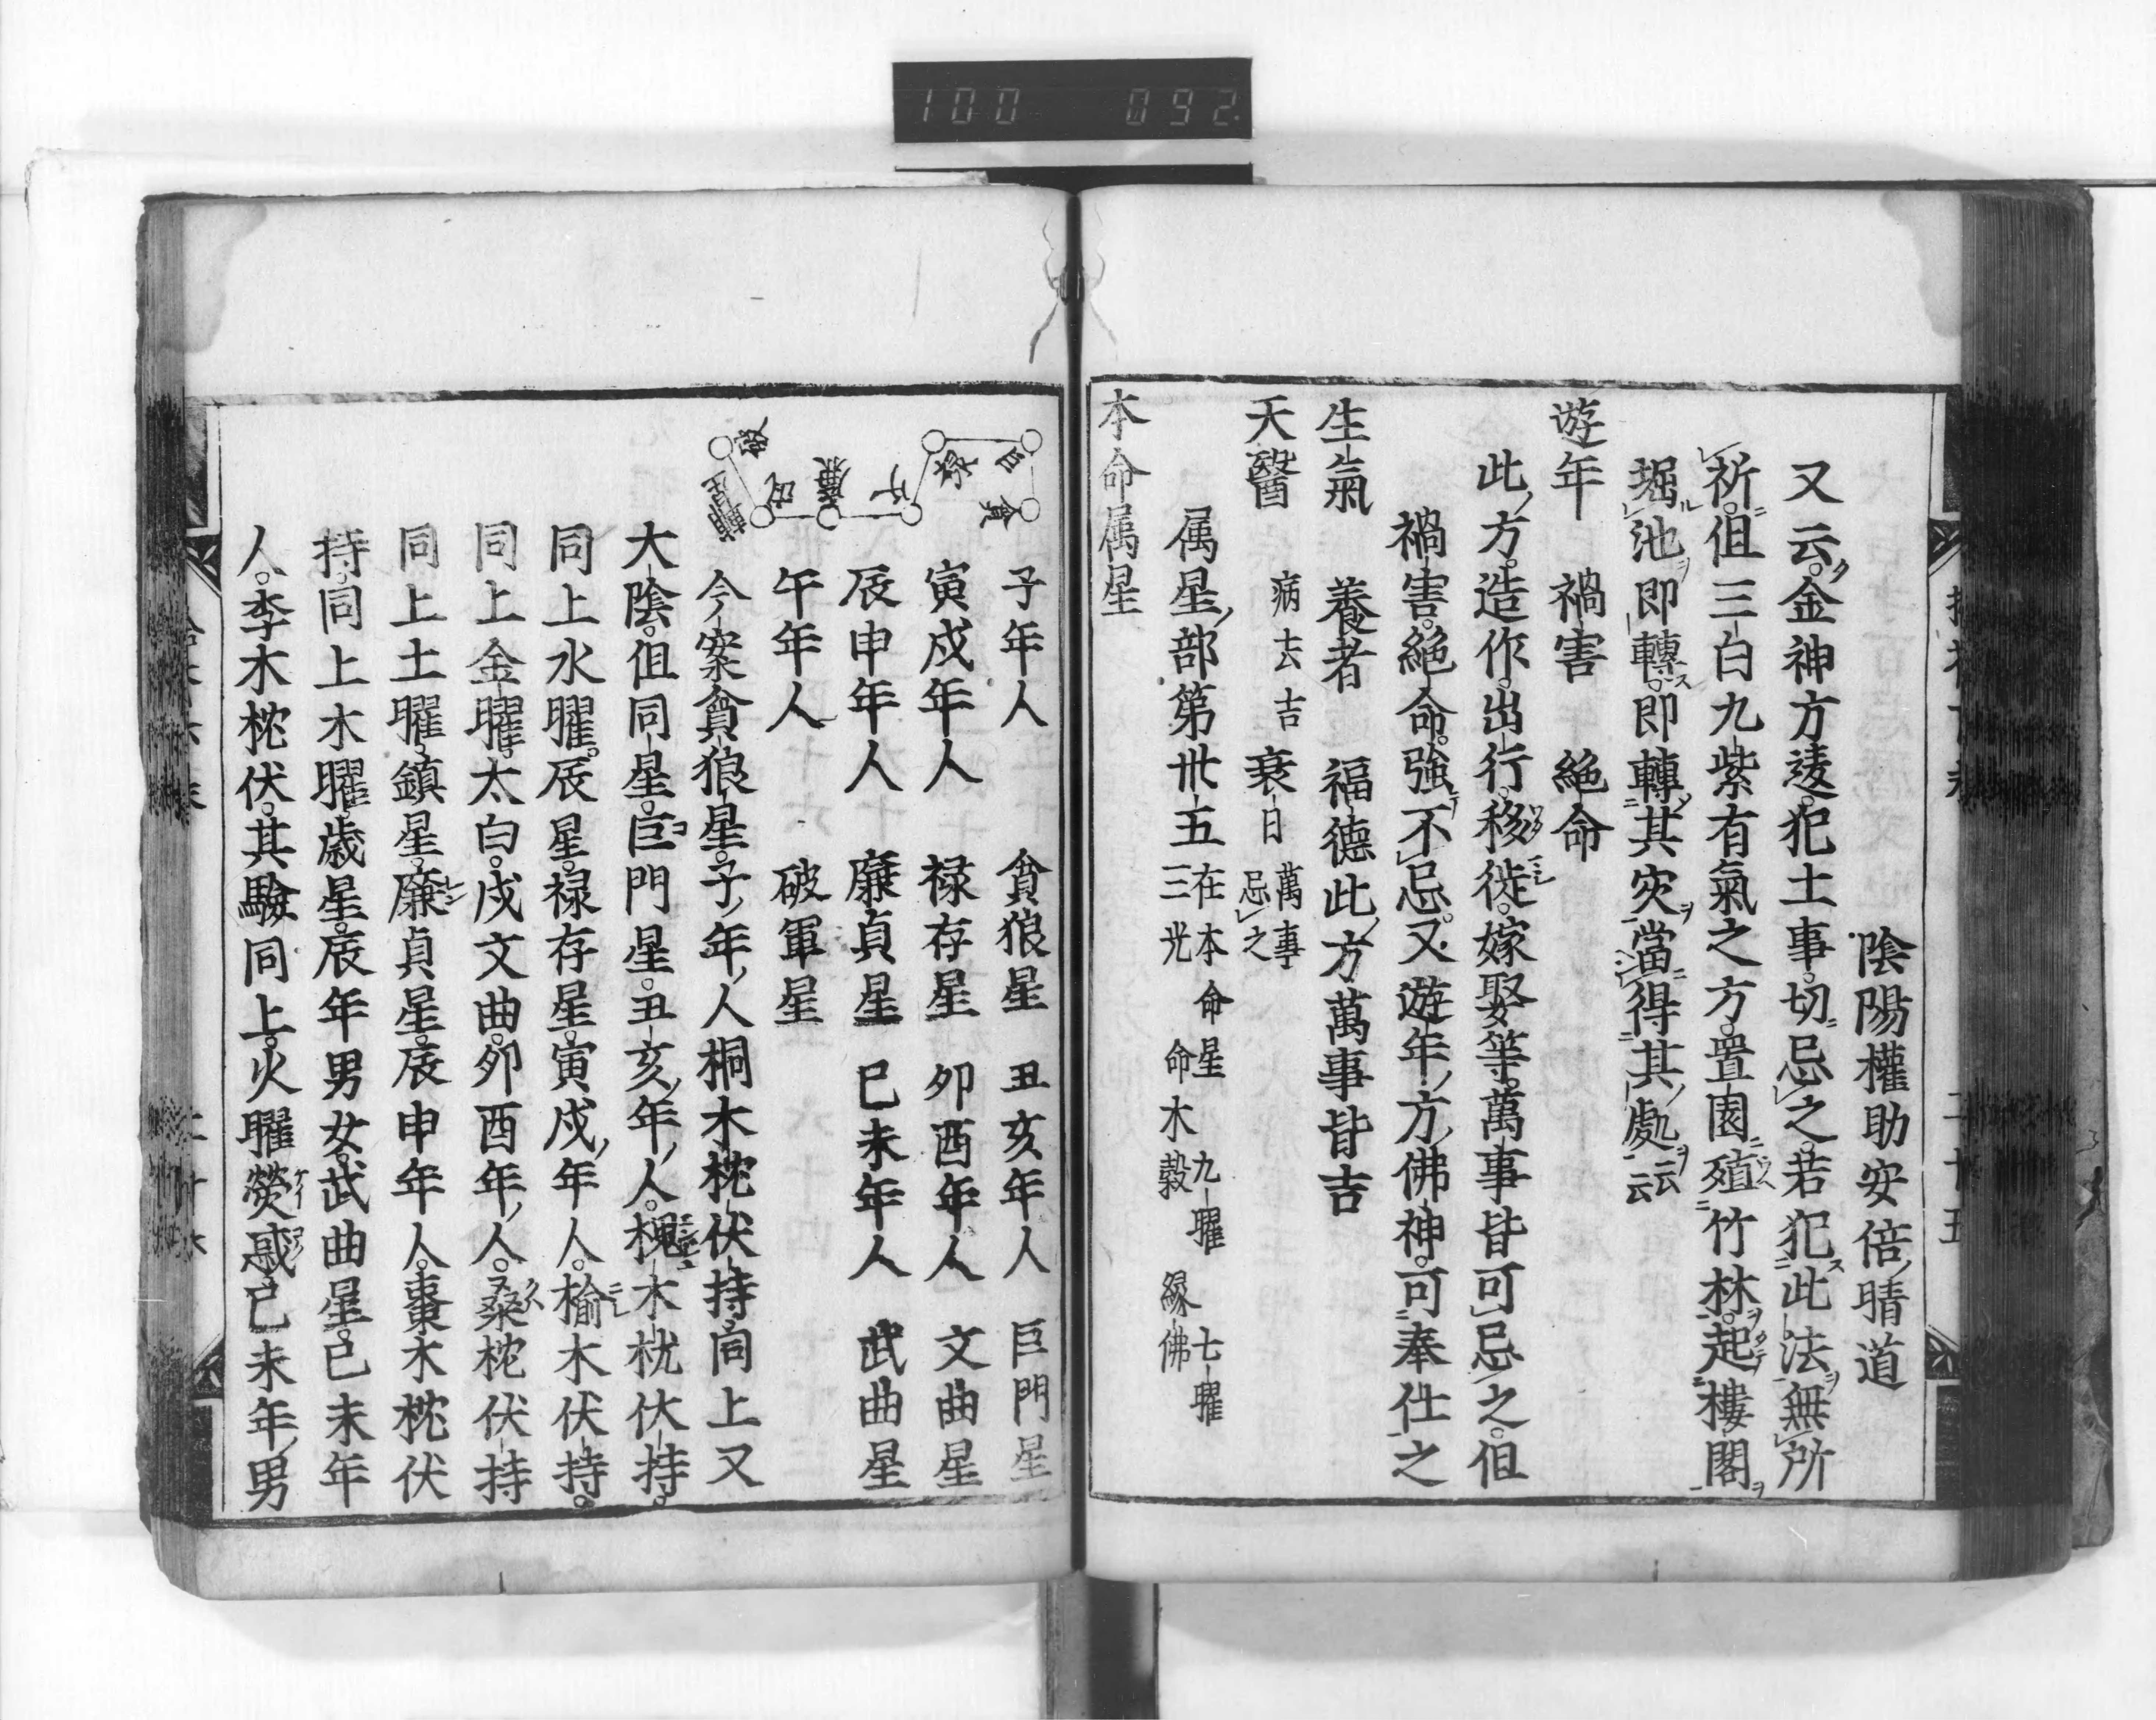 100 092
陰陽權助安倍晴道
又云金神方違犯土事切忌之若犯此法無所
祈但三白九紫有氣之方置園殖竹林起樓閣
堀池即轉即轉其災當得其處云云
遊年 禍害 絶命
此方造作出行移徙嫁娶等萬事皆可忌之但
禍害絶命強不忌又遊年方佛神可奉仕之
生氣 養者 福德此方萬事皆吉
天醫 病去吉 衰日 萬事忌之
属星部第卅五 在本命星 九曜 七曜 三光 命木 穀 縁佛
本命属星
子年人 貪狼星 丑亥年人 巨門星
寅戌年人 禄存星 卯酉年人 文曲星
辰申年人 廉貞星 巳未年人 武曲星
午年人 破軍星
今案貪狼星子年人桐木枕伏持同上又
大陰但同星巨門星丑亥年人槐木枕伏持
同上水曜辰星禄存星寅戌年人榆木伏持
同上金曜太白戌文曲卯酉年人桑枕伏持
同上土曜鎮星廉貞星辰申年人棗木枕伏
持同上木曜歳星辰年男女武曲星己未年
人李木枕伏其驗同上火曜熒惑己未年男